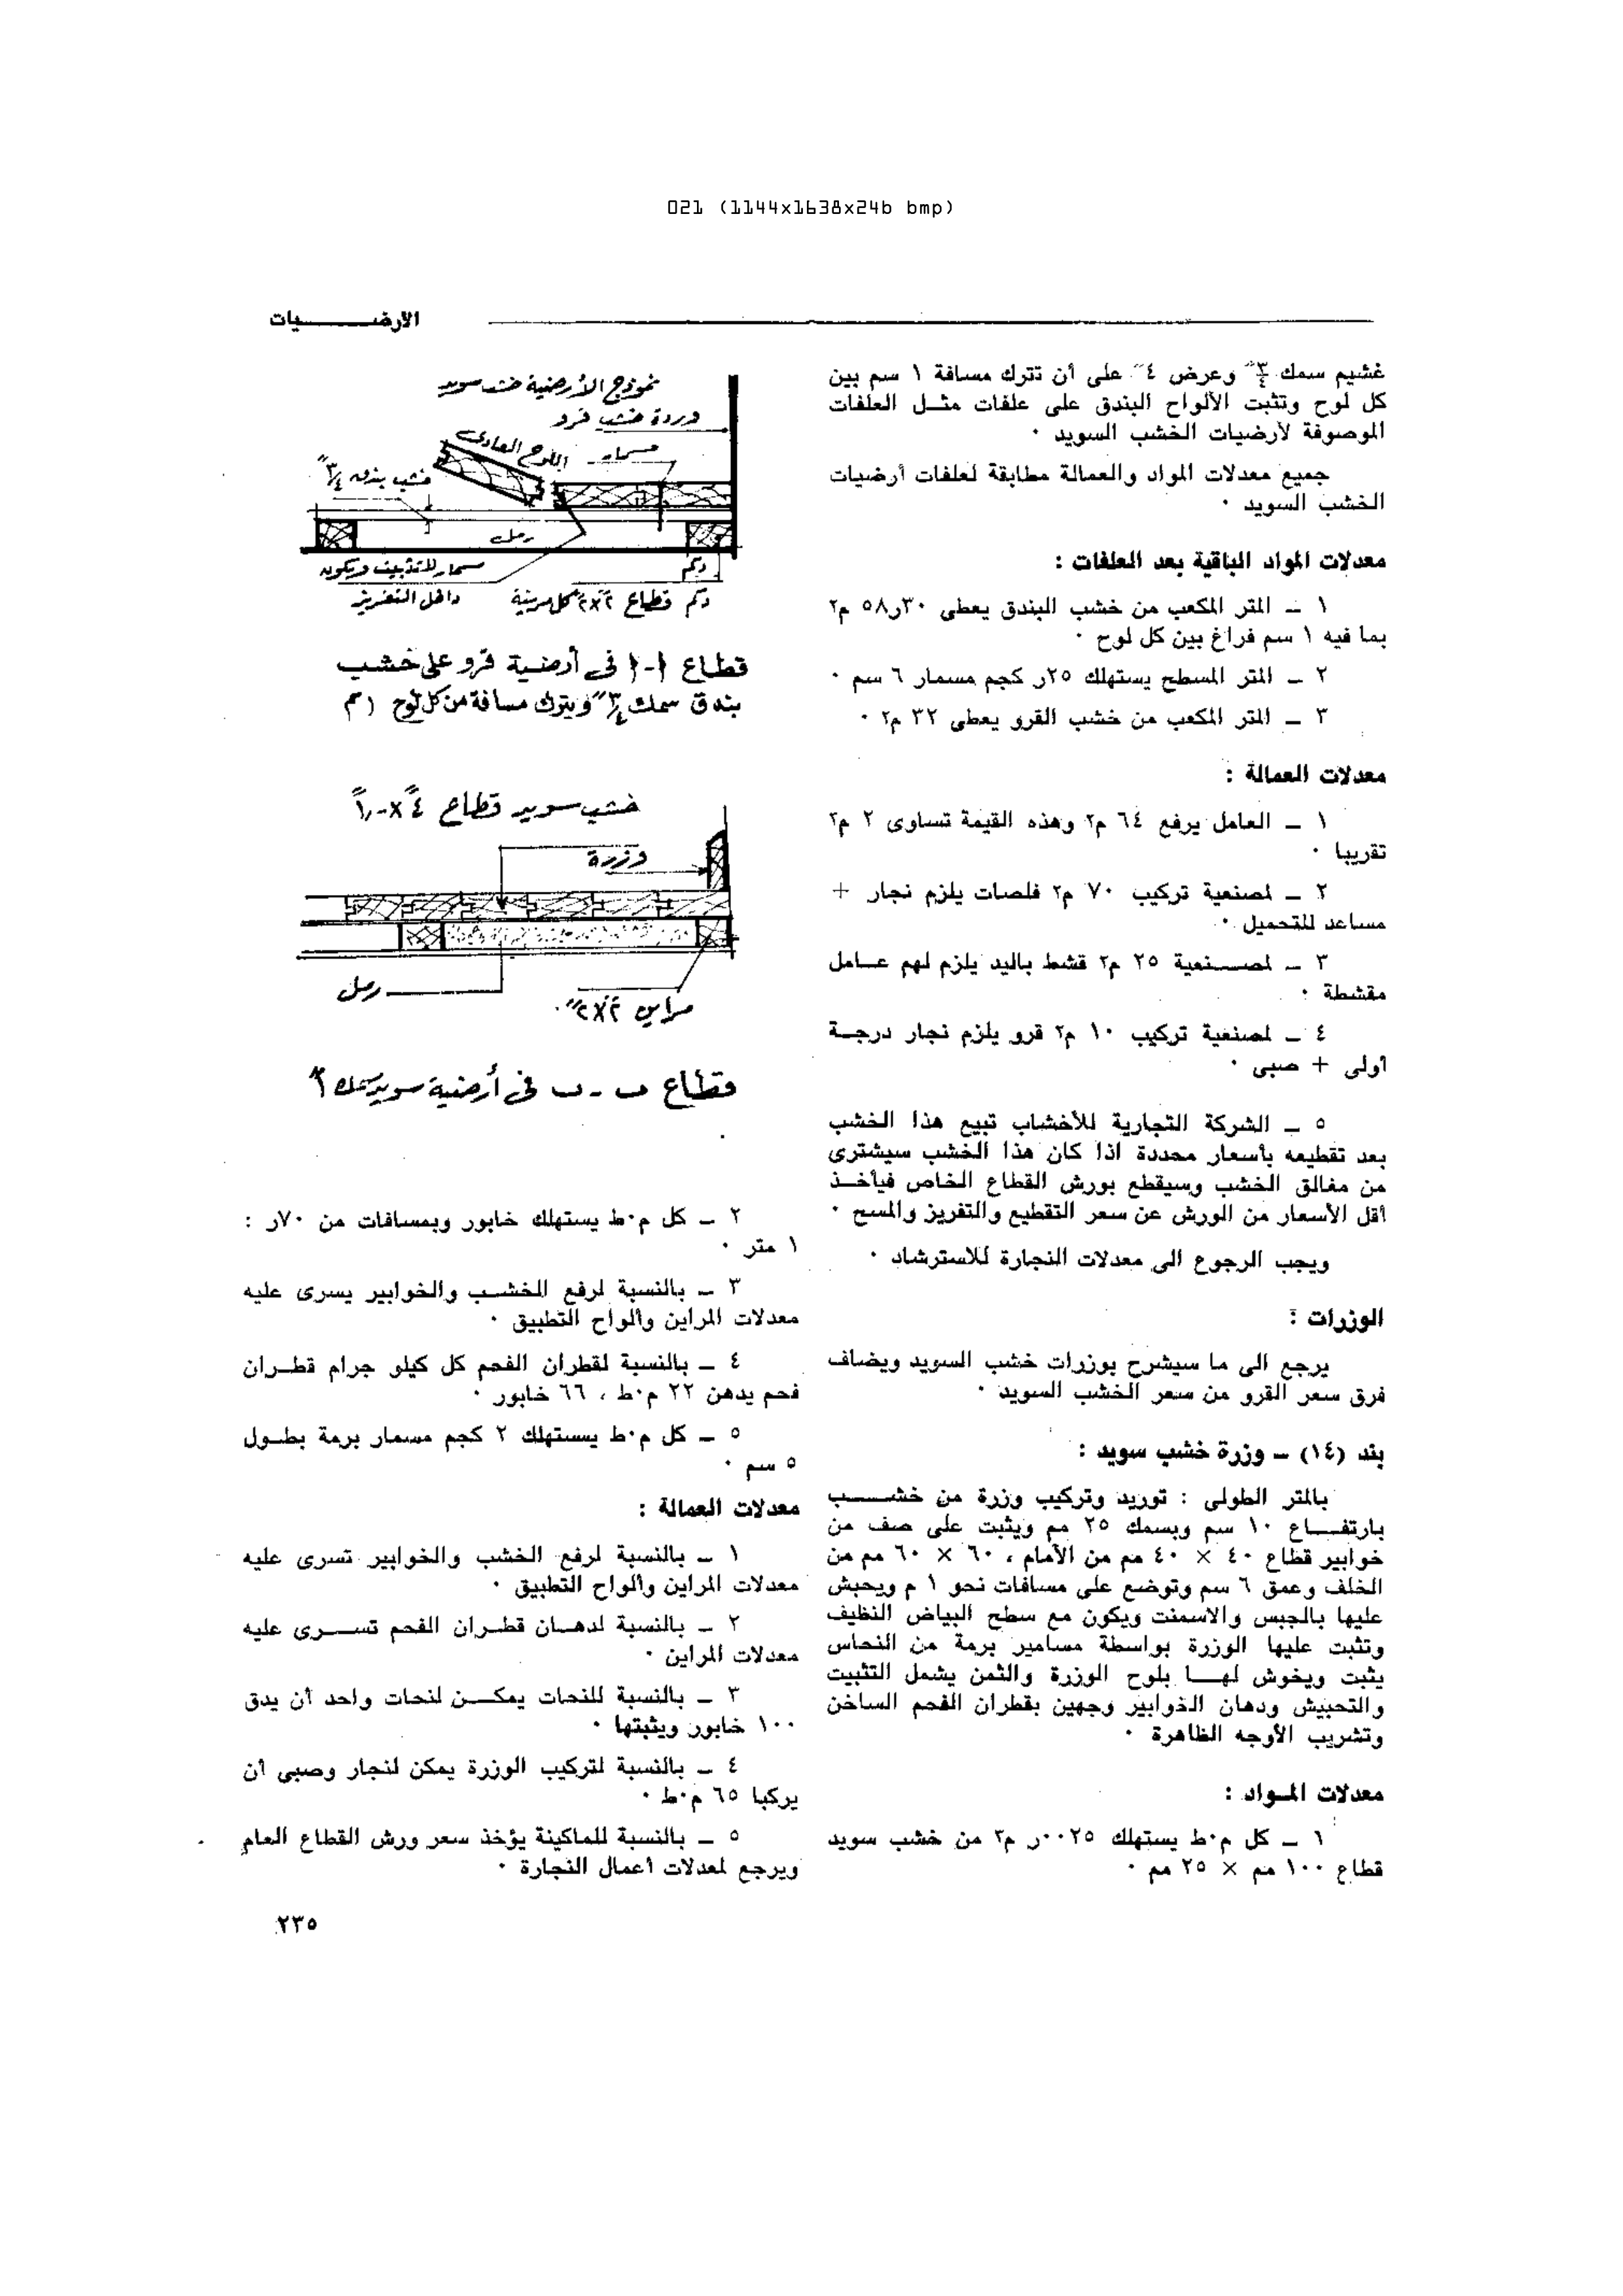 021 (1144x1638x24b bmp)
الارضـــــــيات
غشيم سمك ٣/٤″ وعرض ٤″ على أن تترك مسافة ١ سم بين
كل لوح وتثبت الألواح البندق على علفات مثـل العلفات
الموصوفة لأرضيات الخشب السويد ٠
جميع معدلات المواد والعمالة مطابقة لعلفات أرضيات
الخشب السويد ٠
معدلات المواد الباقية بعد العلفات :
١ ــ المتر المكعب من خشب البندق يعطى ٣٠ر٥٨ م٢
بما فيه ١ سم فراغ بين كل لوح ٠
٢ ــ المتر المسطح يستهلك ٢٥ر كجم مسمار ٦ سم ٠
٣ ــ المتر المكعب من خشب القرو يعطى ٣٢ م٢ ٠
معدلات العمالة :
١ ــ العامل يرفع ٦٤ م٢ وهذه القيمة تساوى ٢ م٣
تقريبا ٠
٢ ــ لمصنعية تركيب ٧٠ م٢ فلصات يلزم نجار +
مساعد للتحميل ٠
٣ ــ لمصــنعية ٢٥ م٢ قشط باليد يلزم لهم عـامل
مقشطة ٠
٤ ــ لمصنعية تركيب ١٠ م٢ قرو يلزم نجار درجـة
أولى + صبى ٠
٥ ــ الشركة التجارية للأخشاب تبيع هذا الخشب
بعد تقطيعه بأسعار محددة اذا كان هذا الخشب سيشترى
من مغالق الخشب وسيقطع بورش القطاع الخاص فيأخـذ
أقل الأسعار من الورش عن سعر التقطيع والتفريز والمسح ٠
ويجب الرجوع الى معدلات النجارة للاسترشاد ٠
الوزرات :
يرجع الى ما سيشرح بوزرات خشب السويد ويضاف
فرق سعر القرو من سعر الخشب السويد ٠
بند (١٤) ــ وزرة خشب سويد :
بالمتر الطولى : توريد وتركيب وزرة من خشــب
بارتفـاع ١٠ سم وبسمك ٢٥ مم ويثبت على صف من
خوابير قطاع ٤٠ × ٤٠ مم من الأمام ، ٦٠ × ٦٠ مم من
الخلف وعمق ٦ سم وتوضع على مسافات نحو ١ م ويحبش
عليها بالجبس والاسمنت ويكون مع سطح البياض النظيف
وتثبت عليها الوزرة بواسطة مسامير برمة من النحاس
يثبت ويخوش لهــا بلوح الوزرة والثمن يشمل التثبيت
والتحبيش ودهان الخوابير وجهين بقطران الفحم الساخن
وتشريب الأوجه الظاهرة ٠
معدلات المـواد :
١ ــ كل م٠ط يستهلك ٠٠٢٥ر م٣ من خشب سويد
قطاع ١٠٠ مم × ٢٥ مم ٠
نموذج الأرضية خشب سويد
وردة خشب قرو
مسمار
اللوح العادى
خشب بندق ٣/٤″
رمل
دكم
مسمار للتثبيت ويكون
داخل التفريز
دكم قطاع ٢″×٢″ كل مرينة
قطاع ١-١ فى أرضية قرو على خشب
بندق سمك ٣/٤″ ويترك مسافة من كل لوح ١سم
خشب سويد قطاع ٤″×١″
وزرة
رمل
مراين ٢″×٢″
قطاع ب - ب فى أرضية سويد سمك ١″
٢ ــ كل م٠ط يستهلك خابور وبمسافات من ٧٠ر :
١ متر ٠
٣ ــ بالنسبة لرفع الخشـب والخوابير يسرى عليه
معدلات المراين وألواح التطبيق ٠
٤ ــ بالنسبة لقطران الفحم كل كيلو جرام قطـران
فحم يدهن ٢٢ م٠ط ، ٦٦ خابور ٠
٥ ــ كل م٠ط يستهلك ٢ كجم مسمار برمة بطـول
٥ سم ٠
معدلات العمالة :
١ ــ بالنسبة لرفع الخشب والخوابير تسرى عليه
معدلات المراين وألواح التطبيق ٠
٢ ــ بالنسبة لدهـان قطـران الفحم تســرى عليه
معدلات المراين ٠
٣ ــ بالنسبة للنحات يمكـن لنحات واحد أن يدق
١٠٠ خابور ويثبتها ٠
٤ ــ بالنسبة لتركيب الوزرة يمكن لنجار وصبى أن
يركبا ٦٥ م٠ط ٠
٥ ــ بالنسبة للماكينة يؤخذ سعر ورش القطاع العام
ويرجع لمعدلات أعمال النجارة ٠
٢٣٥